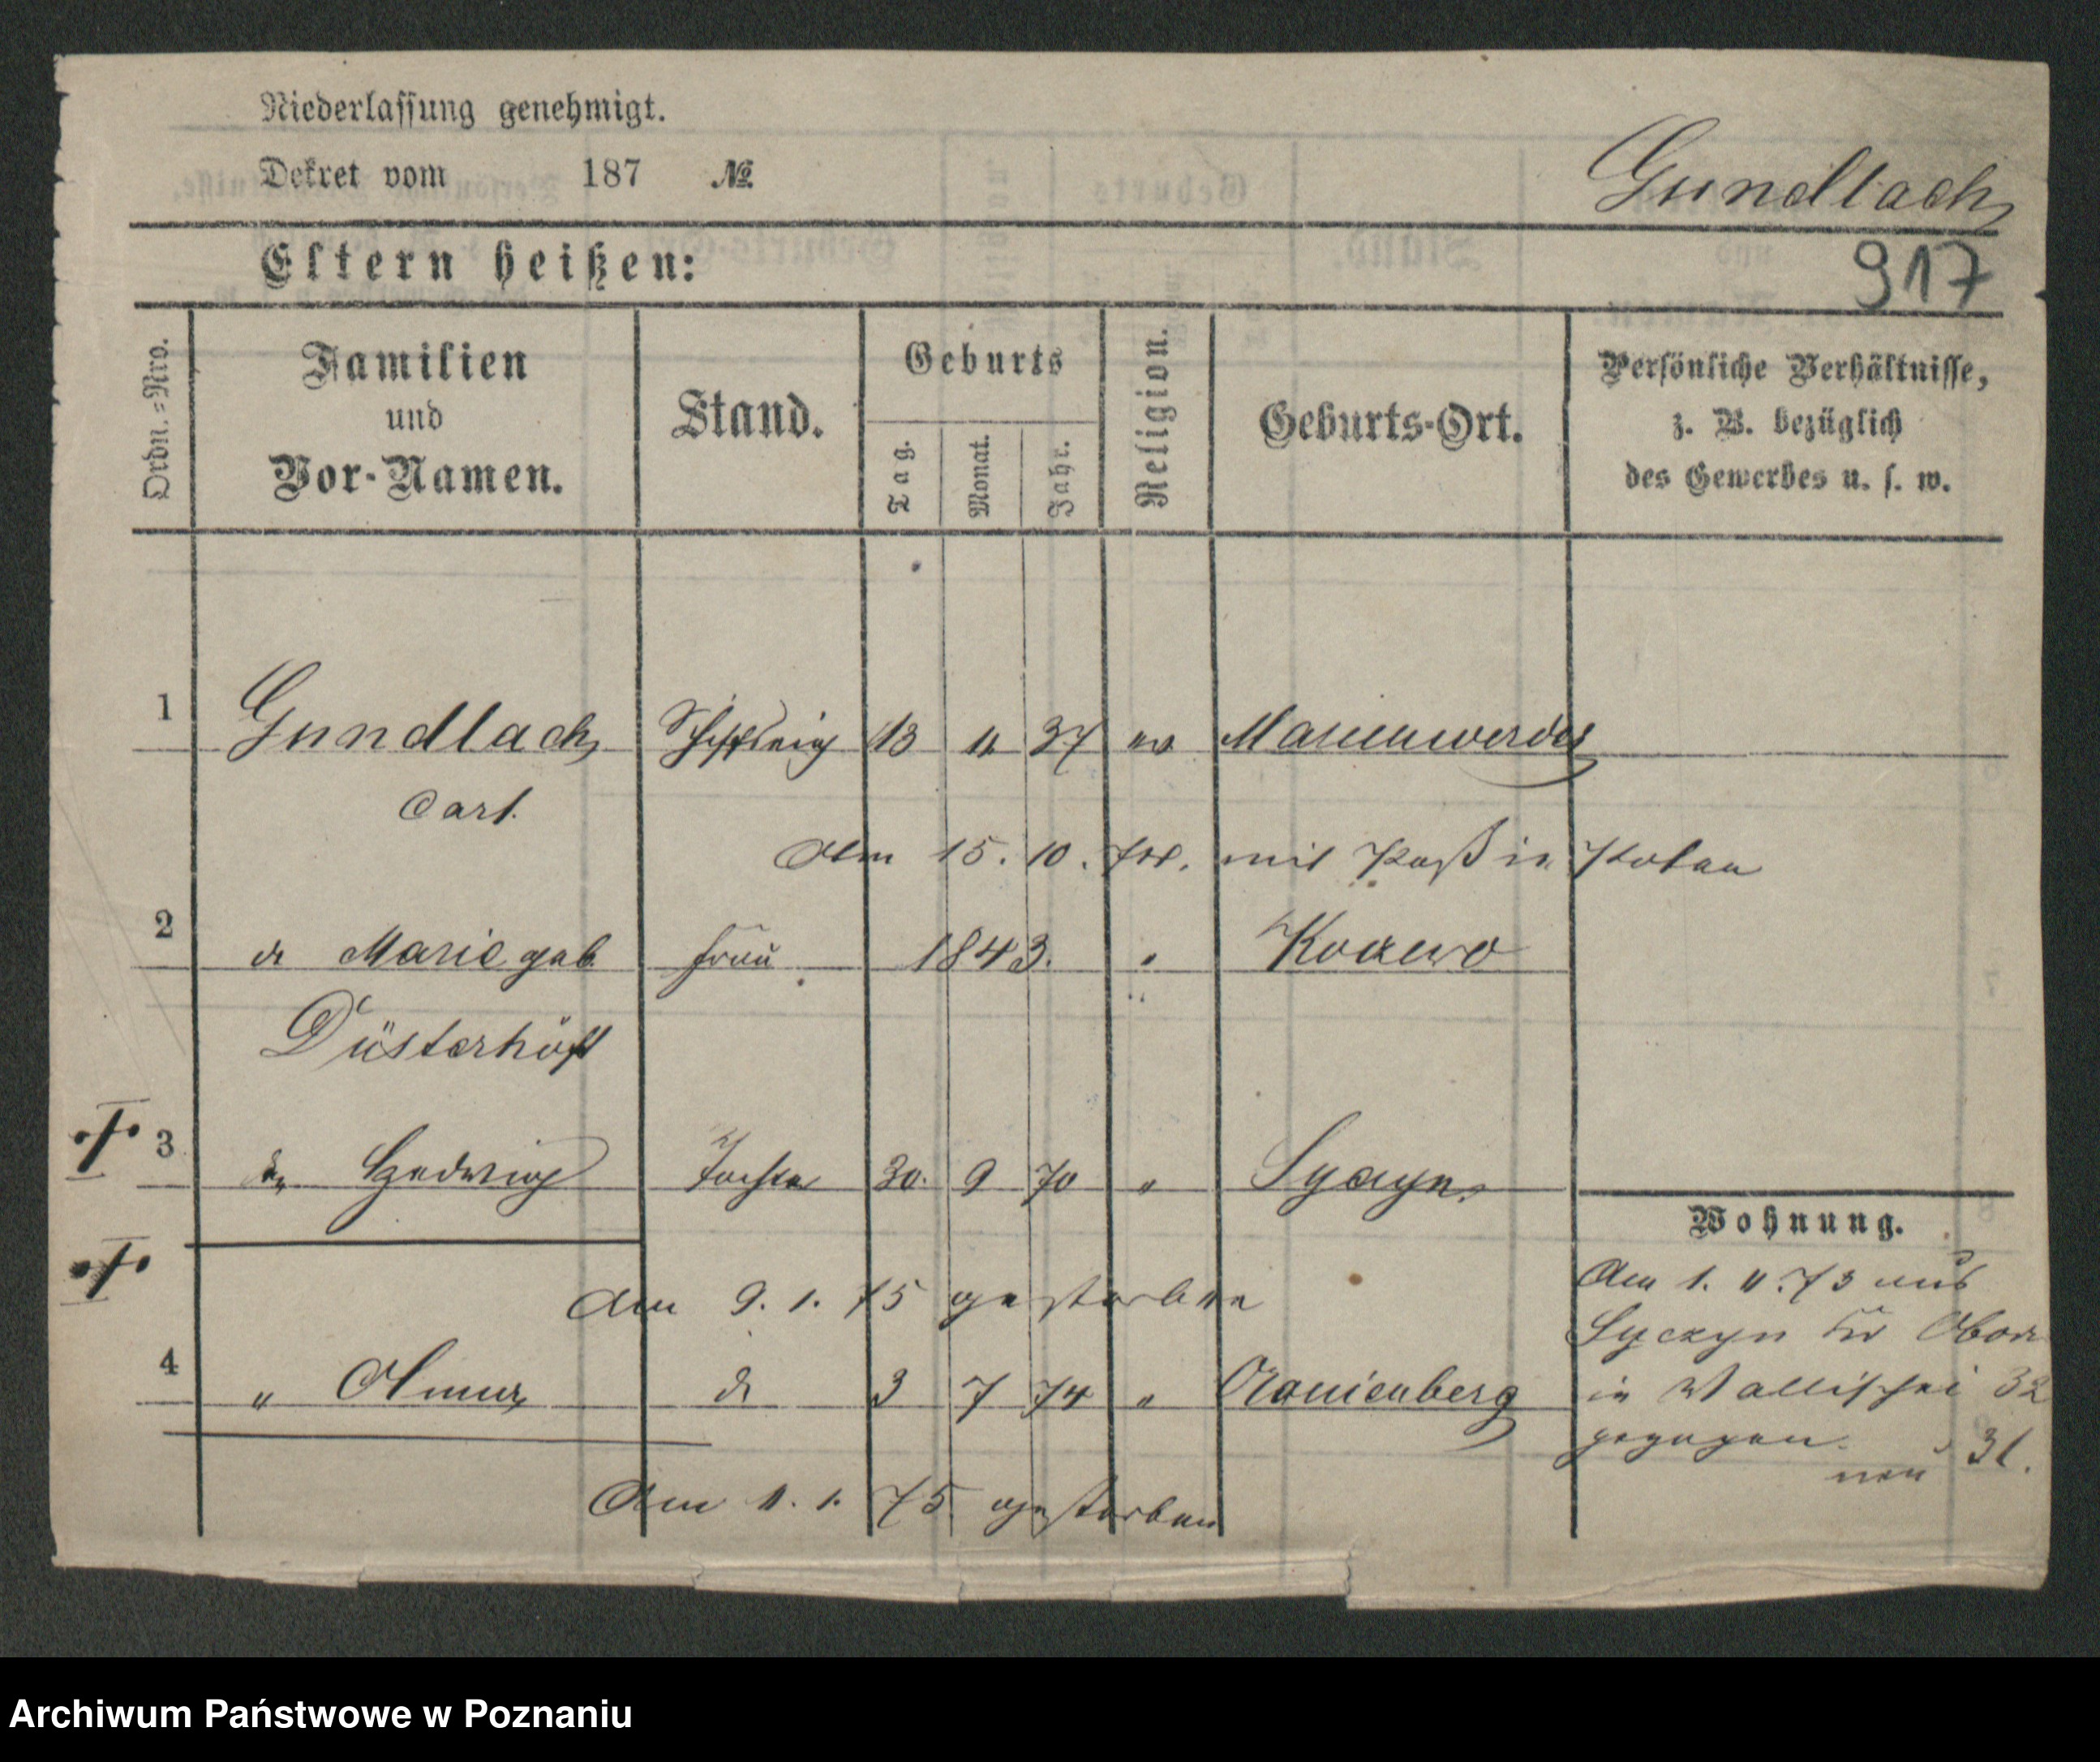 Niederlassung genehmigt.
Dekret vom 187 №
Gundlach
Eltern heißen:
917
Ordn.=Nro.
Familien
und
Vor-Namen.
Stand.
Geburts
Tag.
Monat.
Jahr.
Religion.
Geburts-Ort.
Persönliche Verhältnisse,
z. B. bezüglich
des Gewerbes u. s. w.
1 Gundlach 13 11 37 ev Marienwerder
Carl.
Am 15. 10. mit Paß in Polen
2 do Marie geb. Frau 1843. "
Düsterhöft
3 Hedwig Tochter 30. 9 70 "
Wohnung.
Am 9. 1. 75 gestorben
Am 1. 11. 73 aus
in Wallischei 32
gezogen.
neu 31.
4 " do 3 7 74 " Oranienberg
Am 11. 1. 75. gestorben
Archiwum Państwowe w Poznaniu